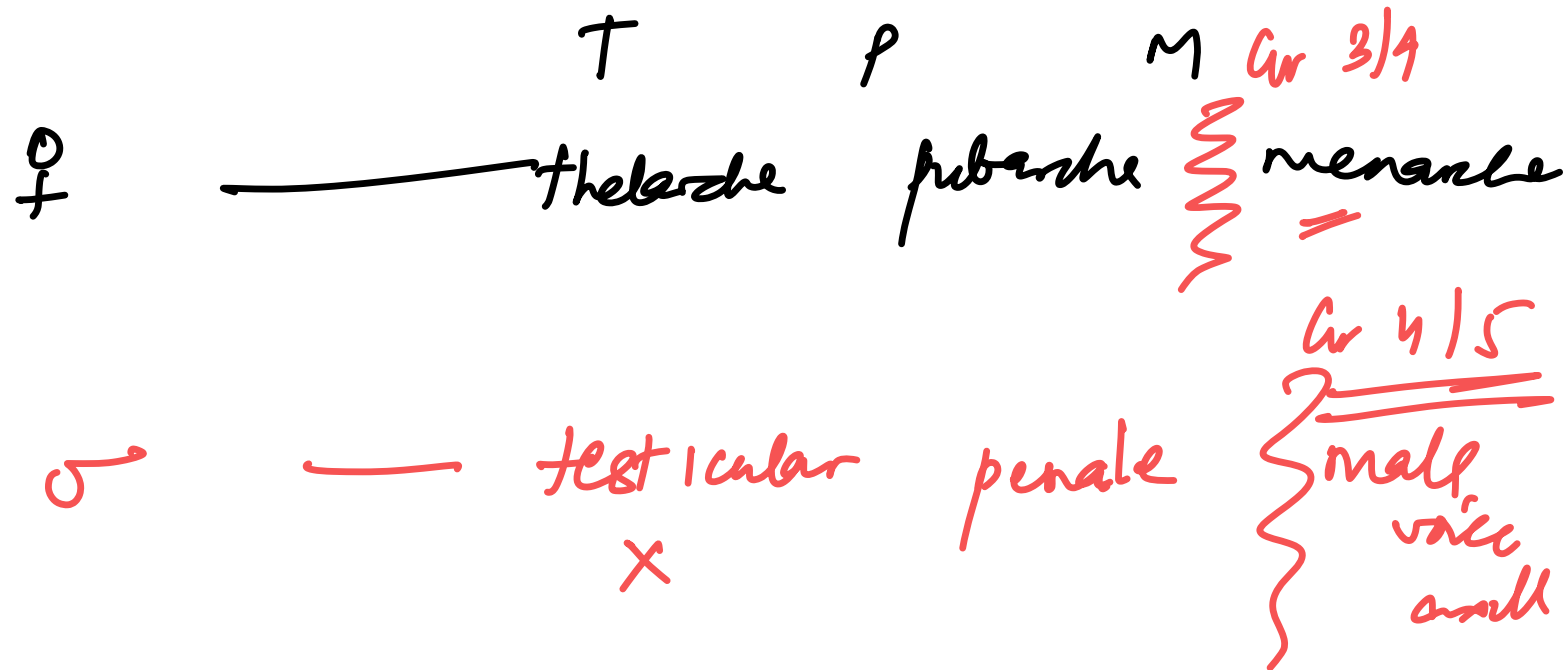 T P M Gr 3/4
♀ thelarche pubarche menarche
Gr 4/5
♂ testicular penale male
X voice